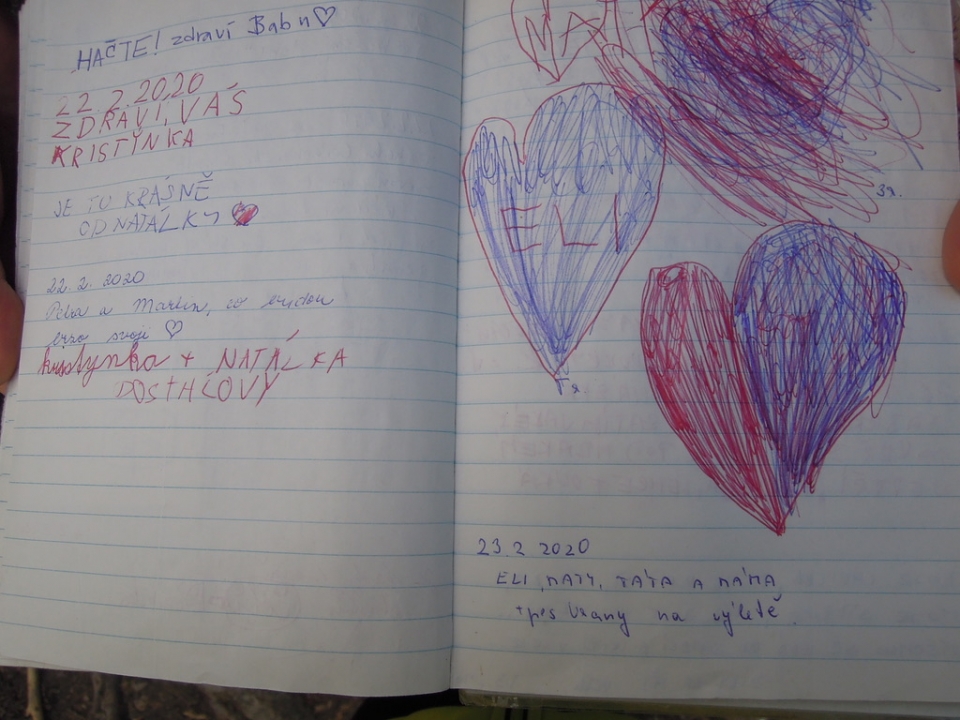 HAČTE! zdraví Babu♡
22.2.2020
ZDRAVÍ, VÁS
KRISTÝNKA
JE TU KRÁSNĚ
OD NATÁLKY
22. 2. 2020
Petra a Martin, co budou
svoji ♡
kristynka + NATÁLKA
DOSTÁLOVÝ
ELI
23.2 2020
ELI, NATY, TÁTA A MÁMA
+pes na výletě